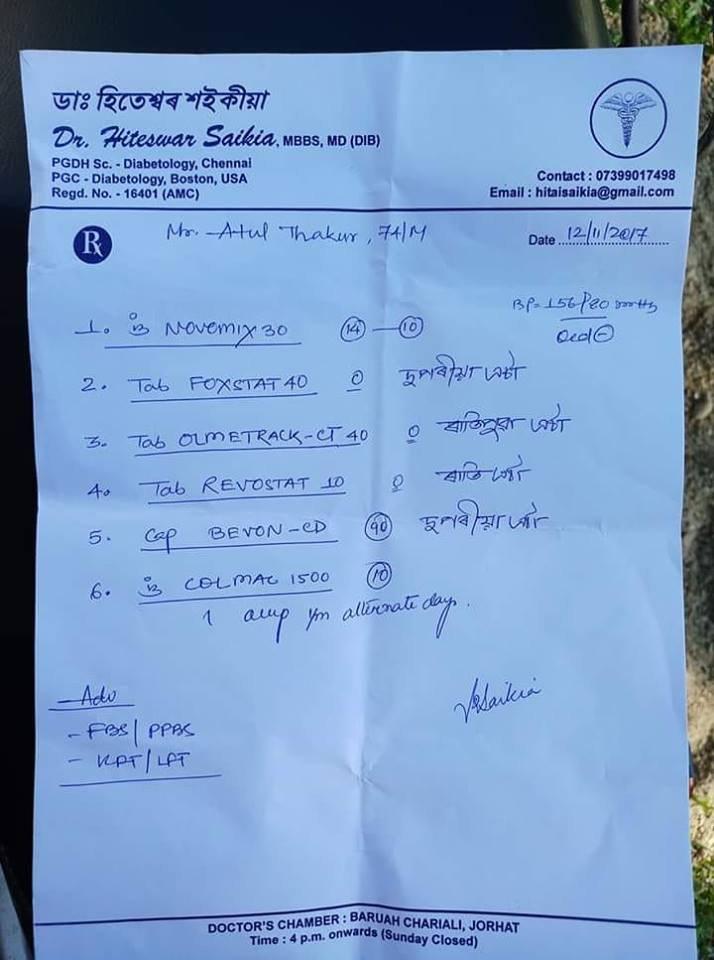 ডাঃ হিতেশ্বৰ শইকীয়া
Dr. Hiteswar Saikia, MBBS, MD (DIB)
PGDH Sc. - Diabetology, Chennai
PGC - Diabetology, Boston, USA
Regd. No. - 16401 (AMC)
Contact : 07399017498
Email : hitaisaikia@gmail.com
Rx
Mr. Atul Thakur, 74/M
Date 12/11/2017
BP= 156/80 mmHg
1. NOVOMIX 30 14 — 10
2. Tab FOXSTAT 40 দুপৰীয়া এটা
3. Tab OLMETRACK-CT 40 ৰাতিপুৱা এটা
4. Tab REVOSTAT 10 ৰাতি এটা
5. Cap BEVON-CD 90 দুপৰীয়া এটা
6. COLMAC 1500 10
1 amp alternate day.
Adv
- FBS/PPBS
- KFT/LFT
Saikia
DOCTOR'S CHAMBER : BARUAH CHARIALI, JORHAT
Time : 4 p.m. onwards (Sunday Closed)